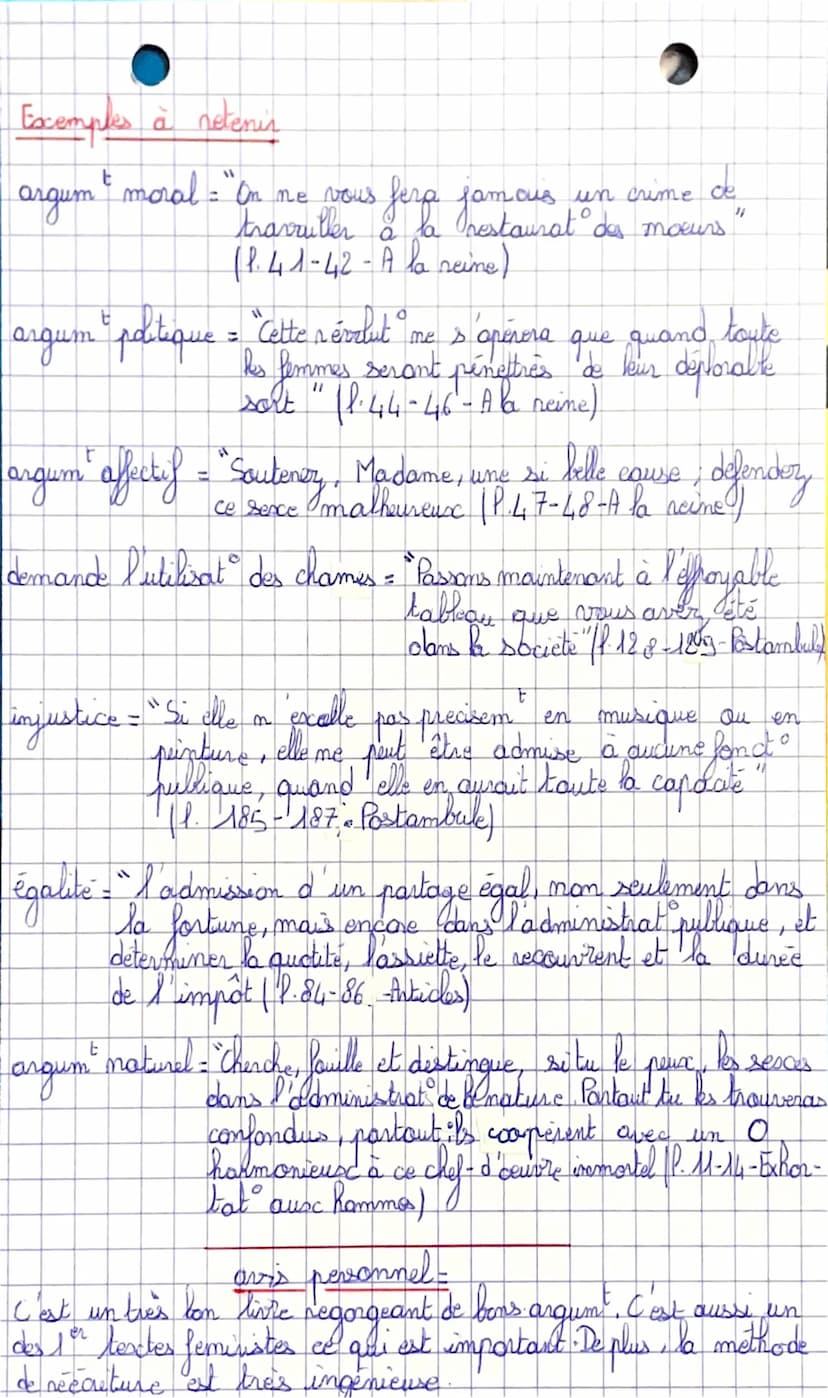 Exemples à retenir
argumᵗ moral = "On ne vous fera jamais un crime de
travailler à la restaurat° des moeurs"
(l.41-42 - A la reine)
argumᵗ politique = "Cette révolut° ne s'opérera que quand toute
les femmes seront pénéttrés de leur déplorable
sort" (l.44-46 - A la reine)
argumᵗ affectif = "Soutenez, Madame, une si belle cause ; defendez
ce sexe malheureux (l.47-48-A la reine)
demande l'utilisat° des charmes = "Passons maintenant à l'éffroyable
tableau que vous avez été
dans la société" (l.128-129-Postambule)
injustice = "Si elle n'excelle pas precisemᵗ en musique ou en
peinture, elle ne peut être admise à aucune fonct°
publique, quand elle en aurait toute la capacité"
(l. 185-187 - Postambule)
égalité = "l'admission d'un partage égal, non seulement dans
la fortune, mais encore dans l'administrat° publique, et
déterminer la quotité, l'assiette, le recouvrent et la durée
de l'impôt (l.84-86 -Articles)
argumᵗ naturel = "Cherche, fouille et distingue, si tu le peux, les sexes
dans l'administrat° de la nature. Partout tu les trouveras
confondus, partout ils coopèrent avec un O
harmonieux à ce chef-d'œuvre immortel (l.11-14-Exhor-
tat° aux hommes)
avis personnel =
C'est un très bon livre regorgeant de bons argumᵗ. C'est aussi un
des 1er textes féministes ce qui est important. De plus, la méthode
de réécriture est très ingénieuse.